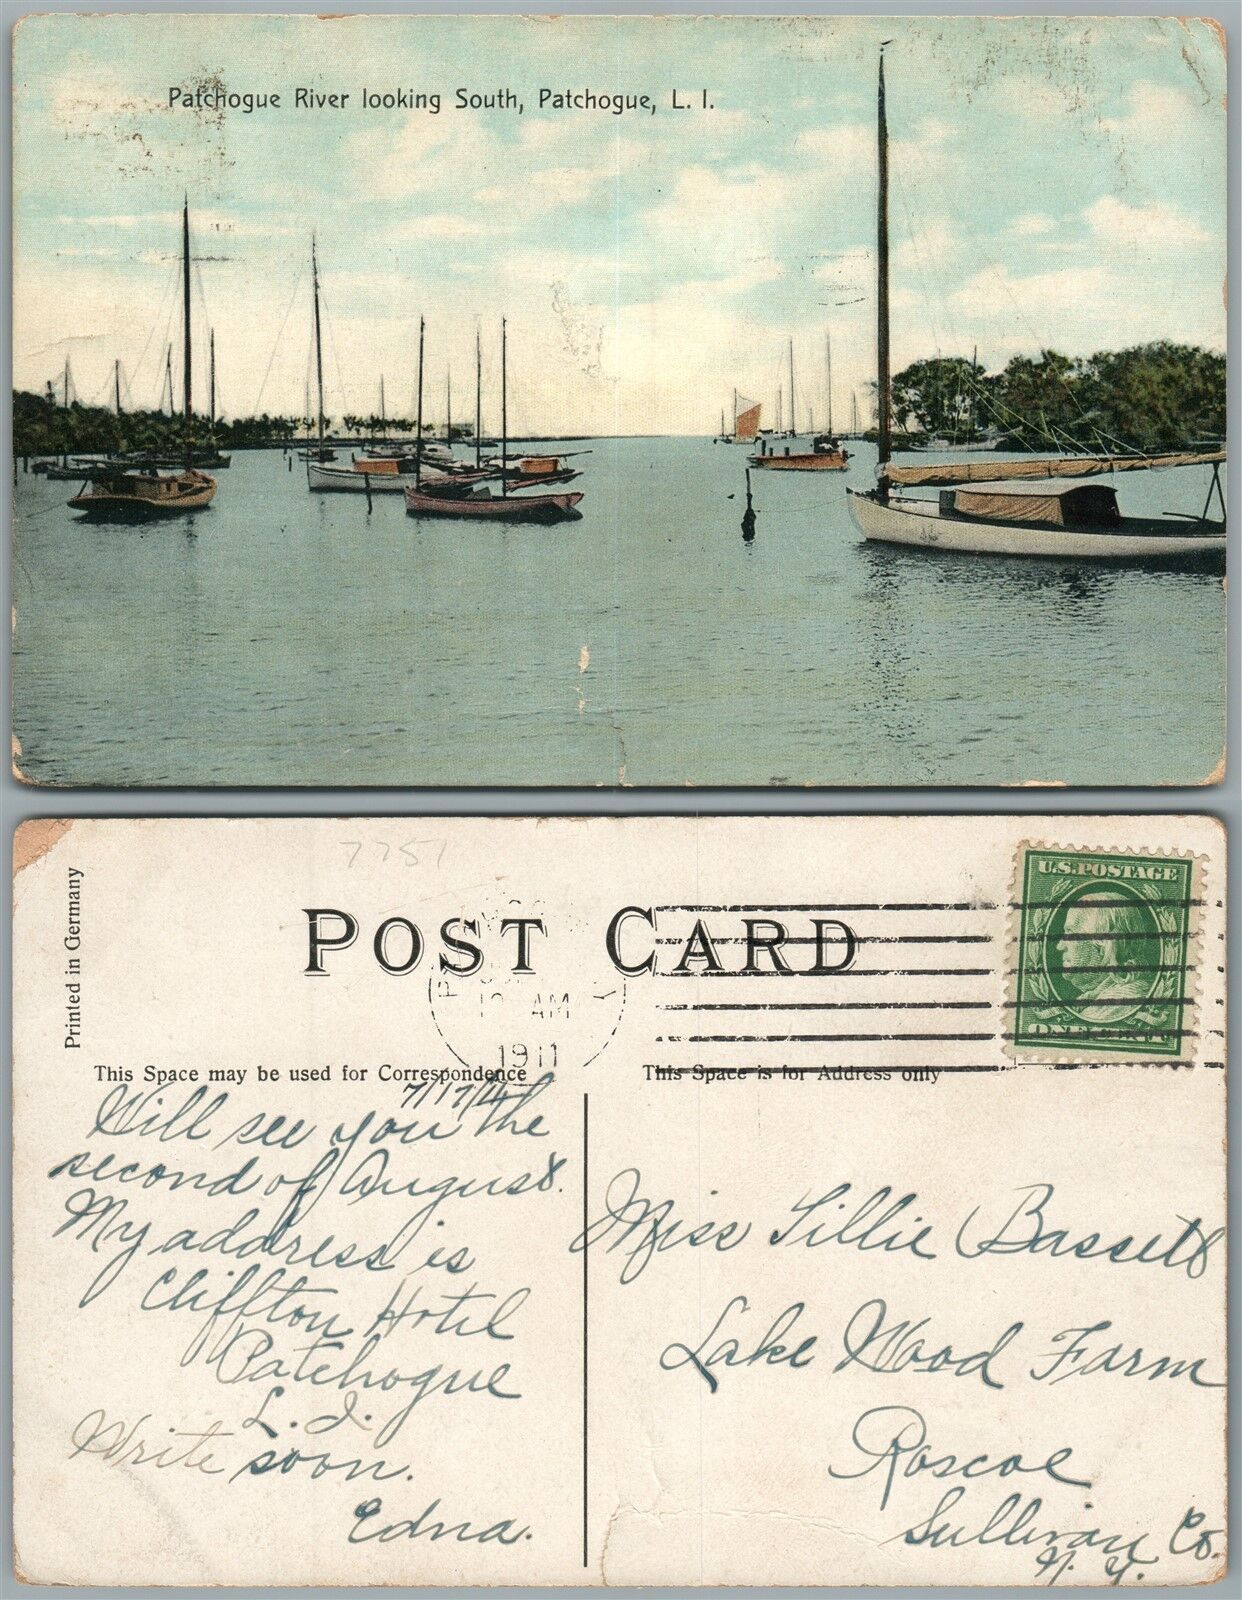 Patchogue River looking South, Patchogue, L. I.
7751
Printed in Germany
POST CARD
U.S. POSTAGE
12 AM
1911
This Space may be used for Correspondence
This Space is for Address only
7/17/11
Will see you the
second of August.
My address is
Cliffton Hotel
Patchogue
L. I.
Write soon.
Edna.
Miss Lillie Bassett
Lake Wood Farm
Roscoe
Sullivan Co.
N. Y.